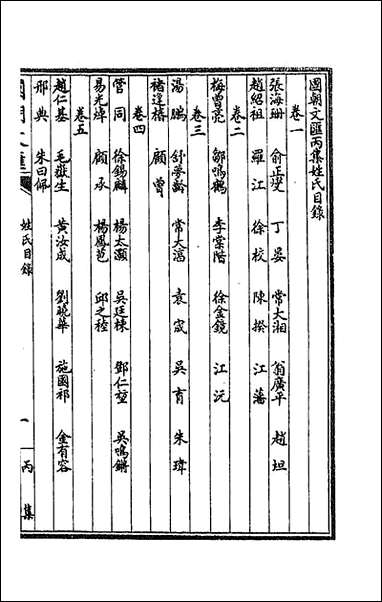 國朝文匯丙集姓氏目錄
卷一
張海珊 俞正燮 丁晏 常大湘 翁廣平 趙坦
趙紹祖 羅江 徐校 陳揆 江藩
卷二
梅曾亮 鄒鳴鶴 李棠階 徐金鏡 江沅
卷三
湯鵬 舒夢齡 常大淳 袁宬 吳育 朱瑋
褚逢椿 顧曾
卷四
管同 徐錫麟 楊大灝 吳廷棟 鄧仁堃 吳鳴鏘
易光焯 顧承 楊鳳苞 邱之稑
卷五
趙仁基 毛嶽生 黃汝成 劉曉華 施國祁 金有容
邢典 朱曰佩
國朝文匯 姓氏目錄 一 丙集